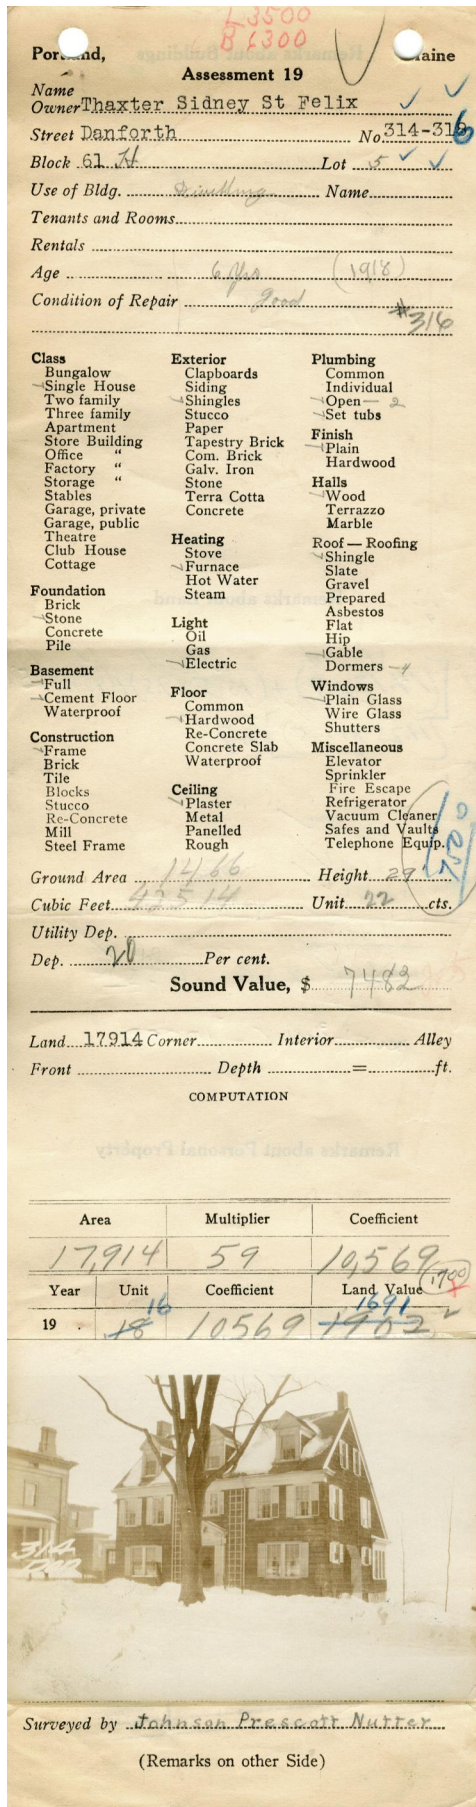 L 3500
B 6300
Portland, Maine
Assessment 19
Name
Owner Thaxter Sidney St Felix
Street Danforth No. 314-316
Block 61 H Lot 5
Use of Bldg. Dwelling Name
Tenants and Rooms
Rentals
Age 6 yrs (1918)
Condition of Repair good
#316
Class
Bungalow
Single House
Two family
Three family
Apartment
Store Building
Office "
Factory "
Storage "
Stables
Garage, private
Garage, public
Theatre
Club House
Cottage
Foundation
Brick
Stone
Concrete
Pile
Basement
Full
Cement Floor
Waterproof
Construction
Frame
Brick
Tile
Blocks
Stucco
Re-Concrete
Mill
Steel Frame
Exterior
Clapboards
Siding
Shingles
Stucco
Paper
Tapestry Brick
Com. Brick
Galv. Iron
Stone
Terra Cotta
Concrete
Heating
Stove
Furnace
Hot Water
Steam
Light
Oil
Gas
Electric
Floor
Common
Hardwood
Re-Concrete
Concrete Slab
Waterproof
Ceiling
Plaster
Metal
Panelled
Rough
Plumbing
Common
Individual
Open — 2
Set tubs
Finish
Plain
Hardwood
Halls
Wood
Terrazzo
Marble
Roof — Roofing
Shingle
Slate
Gravel
Prepared
Asbestos
Flat
Hip
Gable
Dormers — 4
Windows
Plain Glass
Wire Glass
Shutters
Miscellaneous
Elevator
Sprinkler
Fire Escape
Refrigerator
Vacuum Cleaner
Safes and Vaults
Telephone Equip.
Ground Area 1466 Height 29
Cubic Feet 42514 Unit 22 cts.
Utility Dep.
Dep. 20 Per cent.
Sound Value, $ 7482
Land 17914 Corner Interior Alley
Front Depth = ft.
COMPUTATION
Area Multiplier Coefficient
17,914 59 10,569
1700
Year Unit Coefficient Land Value
16 1691
19 18 10569 1902
314
Surveyed by Johnson Prescott Nutter
(Remarks on other Side)